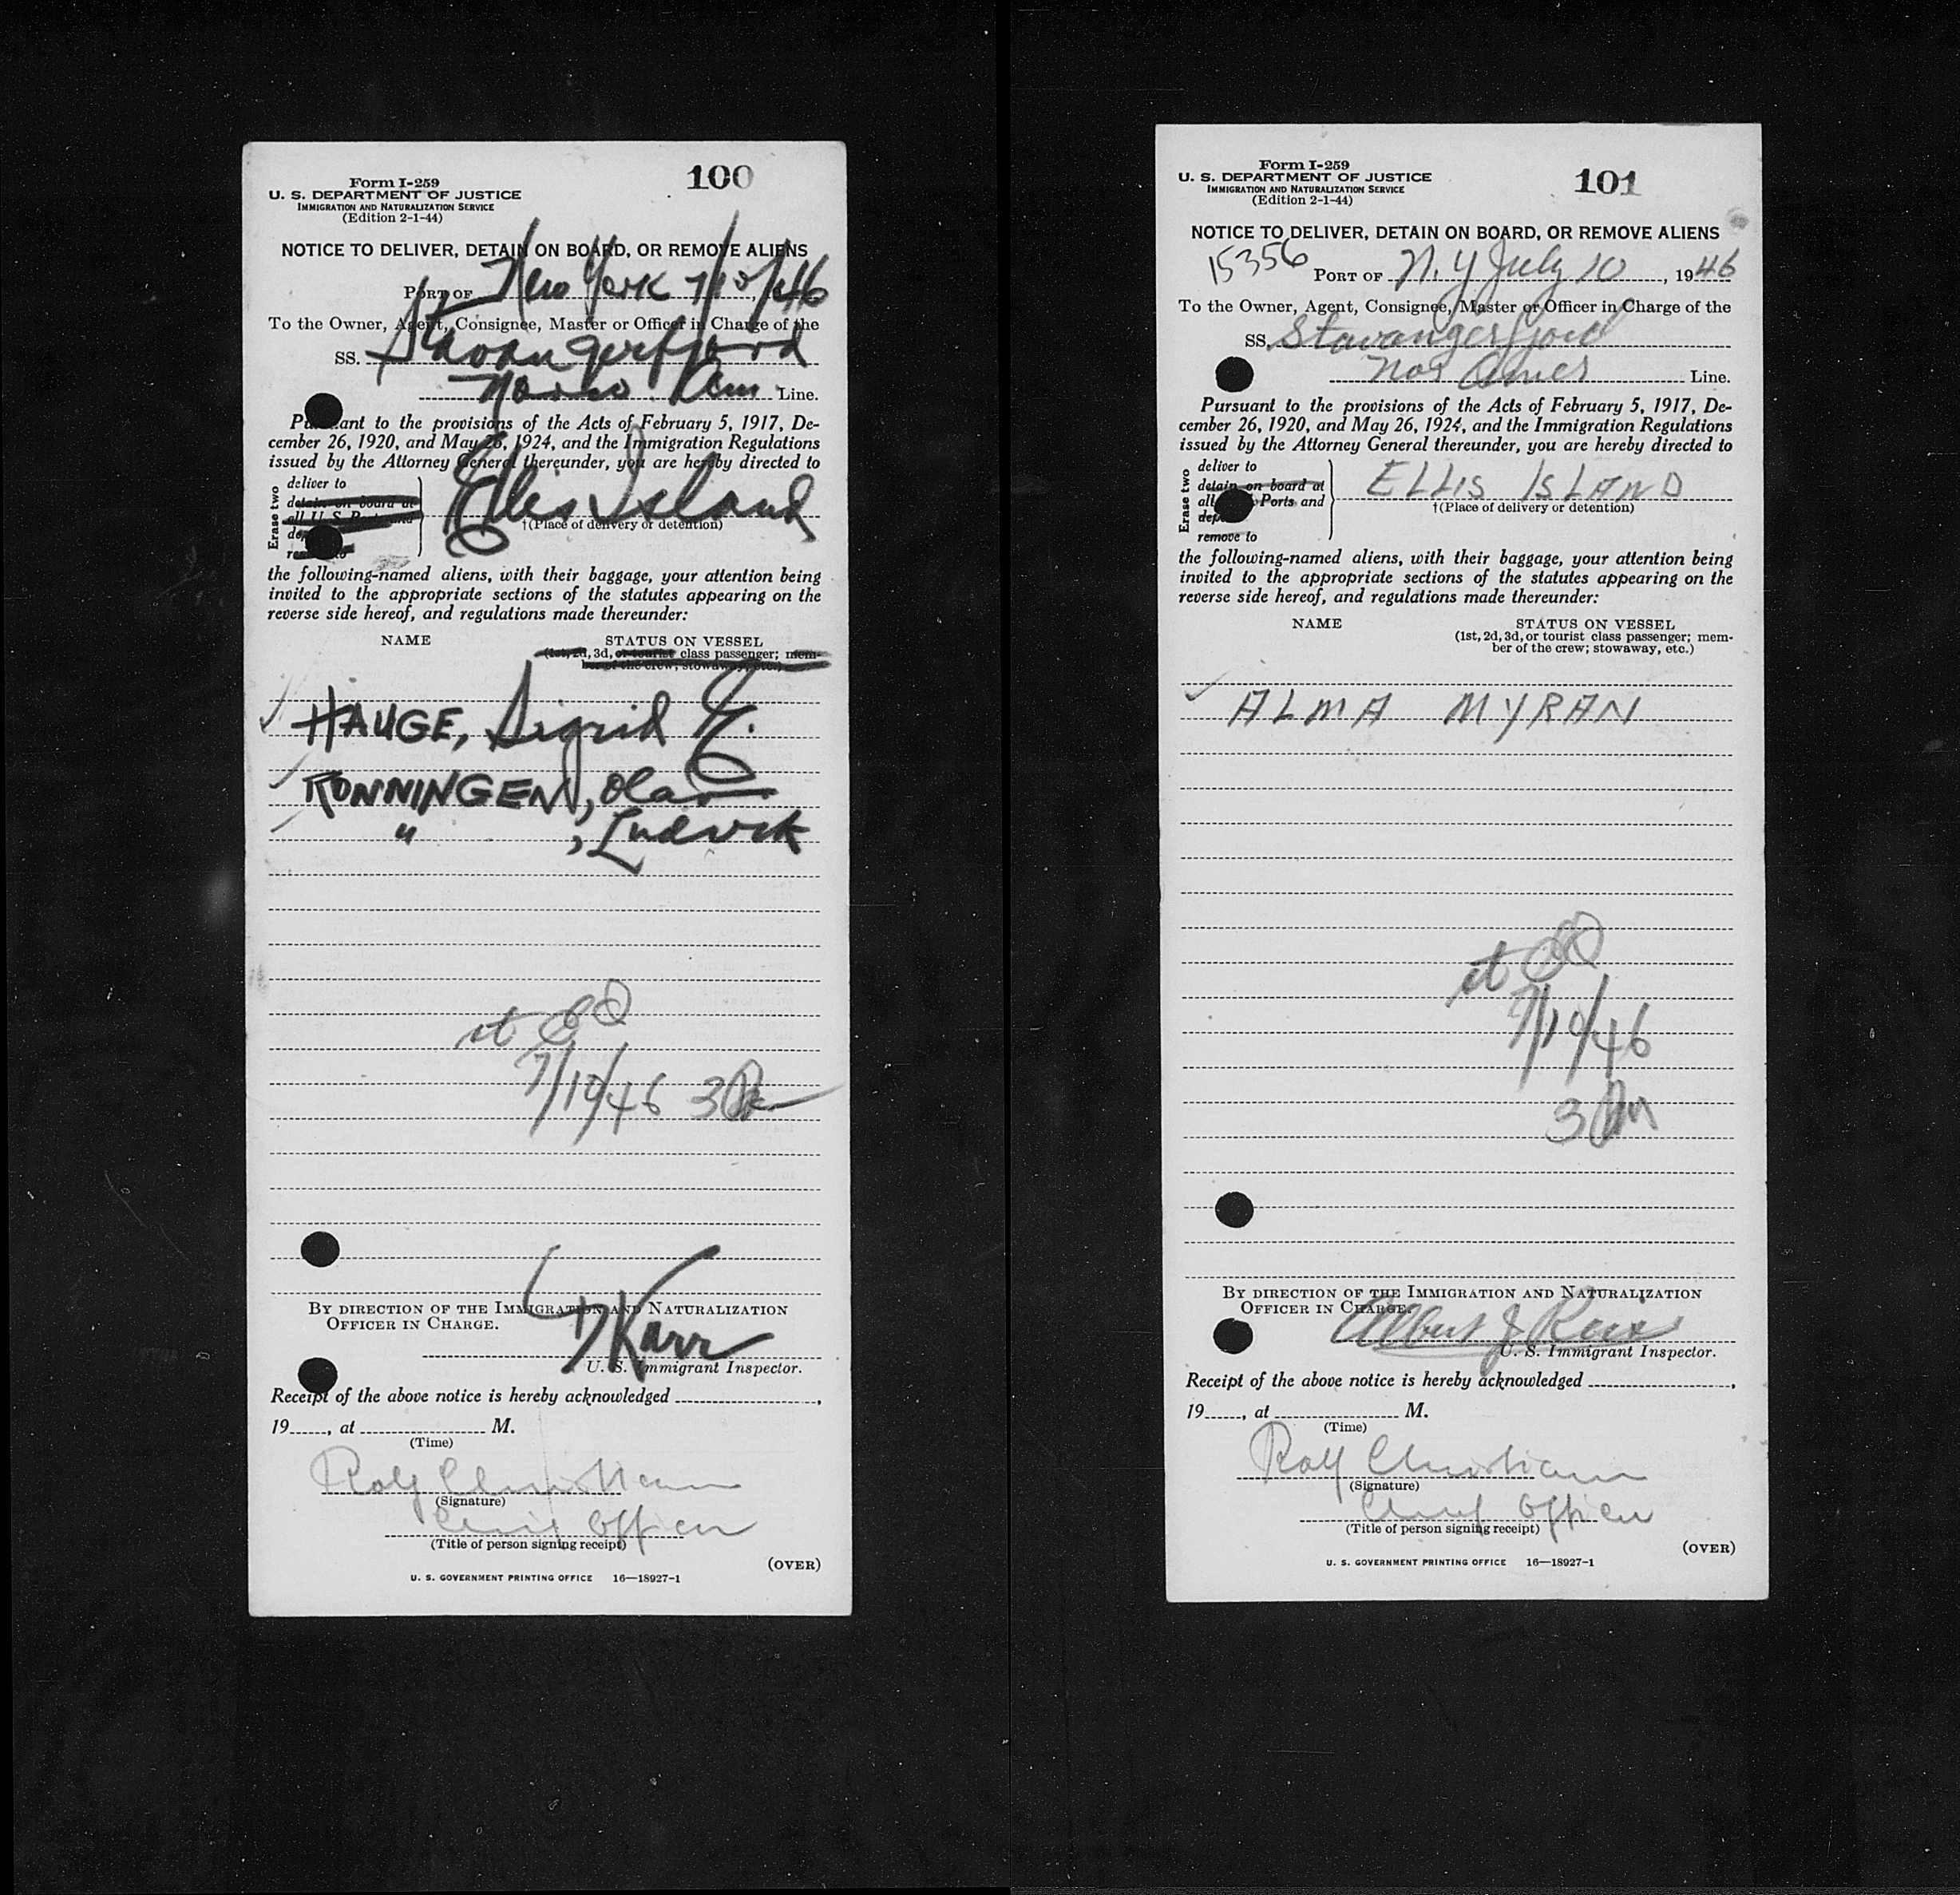 100
Form I-259
U. S. DEPARTMENT OF JUSTICE
IMMIGRATION AND NATURALIZATION SERVICE
(Edition 2-1-44)
NOTICE TO DELIVER, DETAIN ON BOARD, OR REMOVE ALIENS
PORT OF New York 7/10/46
To the Owner, Agent, Consignee, Master or Officer in Charge of the
SS. Stavangerfjord
Norw. Am. Line.
Pursuant to the provisions of the Acts of February 5, 1917, De-
cember 26, 1920, and May 26, 1924, and the Immigration Regulations
issued by the Attorney General thereunder, you are hereby directed to
Erase two
deliver to
detain on board at
all U. S. Ports and
Ellis Island
†(Place of delivery or detention)
the following-named aliens, with their baggage, your attention being
invited to the appropriate sections of the statutes appearing on the
reverse side hereof, and regulations made thereunder:
NAME STATUS ON VESSEL
(1st, 2d, 3d, or tourist class passenger; mem-
ber of the crew; stowaway, etc.)
HAUGE, Sigrid E.
RONNINGEN, Olav
" , Ludvik
7/10/46 3
BY DIRECTION OF THE IMMIGRATION AND NATURALIZATION
OFFICER IN CHARGE.
Karr
U. S. Immigrant Inspector.
Receipt of the above notice is hereby acknowledged ,
19 , at M.
(Time)
Rolf Christiansen
(Signature)
Chief Officer
(Title of person signing receipt)
(OVER)
U. S. GOVERNMENT PRINTING OFFICE 16—18927-1
101
Form I-259
U. S. DEPARTMENT OF JUSTICE
IMMIGRATION AND NATURALIZATION SERVICE
(Edition 2-1-44)
NOTICE TO DELIVER, DETAIN ON BOARD, OR REMOVE ALIENS
15356
PORT OF N. Y July 10, 1946
To the Owner, Agent, Consignee, Master or Officer in Charge of the
SS. Stavangerfjord
Nor Amer Line.
Pursuant to the provisions of the Acts of February 5, 1917, De-
cember 26, 1920, and May 26, 1924, and the Immigration Regulations
issued by the Attorney General thereunder, you are hereby directed to
Erase two
deliver to
detain on board at
all Ports and
remove to
ELLIS ISLAND
†(Place of delivery or detention)
the following-named aliens, with their baggage, your attention being
invited to the appropriate sections of the statutes appearing on the
reverse side hereof, and regulations made thereunder:
NAME STATUS ON VESSEL
(1st, 2d, 3d, or tourist class passenger; mem-
ber of the crew; stowaway, etc.)
ALMA MYRAN
7/10/46
3 PM
BY DIRECTION OF THE IMMIGRATION AND NATURALIZATION
OFFICER IN CHARGE.
Albert J
U. S. Immigrant Inspector.
Receipt of the above notice is hereby acknowledged ,
19 , at M.
(Time)
Rolf Christiansen
(Signature)
Chief Officer
(Title of person signing receipt)
(OVER)
U. S. GOVERNMENT PRINTING OFFICE 16—18927-1